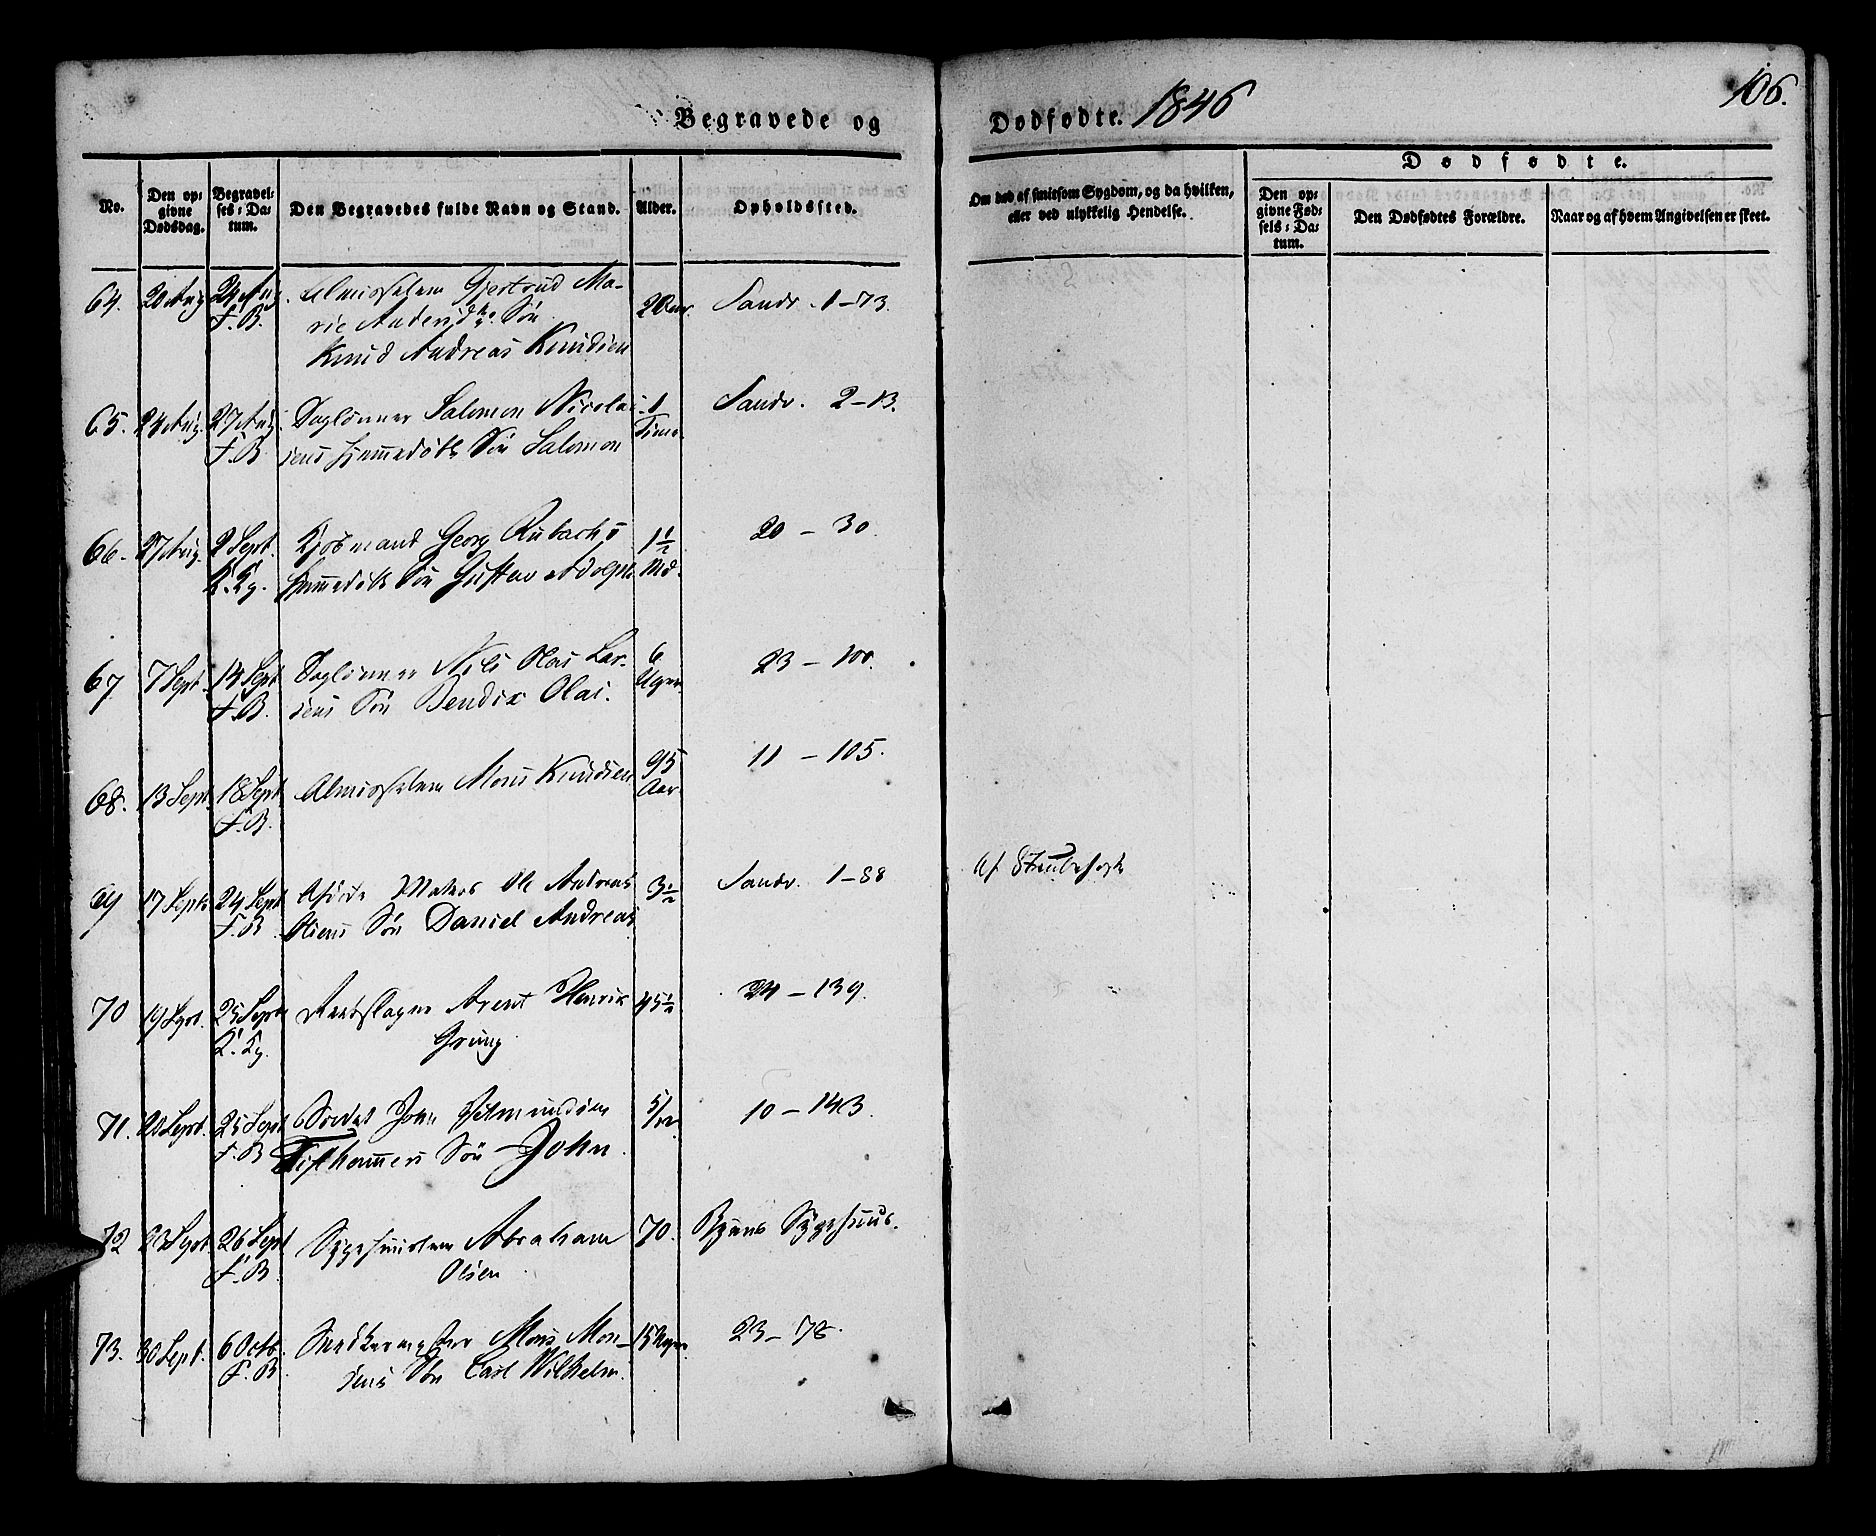 Begravede og
Dødfødte. 1846
106.
No.
Den op-
givne
Dødsdag.
Begravel-
ses-Da-
tum.
Den Begravedes fulde Navn og Stand.
Alder.
Opholdssted.
Om død af smitsom Sygdom, og da hvilken,
eller ved ulykkelig Hendelse.
Dødfødte.
Den op-
givne Fød-
sels-Da-
tum.
Den Dødfødtes Forældre.
Naar og af hvem Angivelsen er skeet.
64. 20 Aug 24 Aug Almisselem Gjertrud Ma- Sandv. 1-73.
F.B. rie Andersd. Søn
Knud Andreas Knudsen
65. 24 Aug. 27 Aug. Dagleiner Salomon Nicolai- 1 Sandv. 2-13.
F.B. sens hjemmedøbt Søn Salomon Time
66. 27 Aug. 2 Sept. Kjøbmand Georg Rubachs 1½ 20-30.
K.Kg. hjemmedøbt Søn Gustav Adolph Md.
67 7 Sept. 14 Sept Dagleiner Nils Olai Lar- 6 23-100.
F.B. sens Søn Bendix Olai. Uger
68. 13 Sept. 18 Sept Almisselem Mons Knudsen 95 11-105.
F.B. Aar
69 17 Sept. 24 Sept Matros Ole Andreas 3½ Sandv. 1-88 Af Strubehoste
F.B. Olsens Søn Daniel Andreas
70 19 Sept. 25 Sept Arent Henrik 45½ 24-139.
K.Kg. Grung
71. 20 Sept. 25 Sept Soldat John 5/12 10-143.
F.B. Søn John
72 23 Sept 26 Sept Sygehuuslem Abraham 70. Byens Sygehuus.
F.B. Olsen
73. 30 Sept. 6 Octb. Snedkermester Mons Mon- 15 Uger 23-78.
F.B. sens Søn Carl Wilhelm.